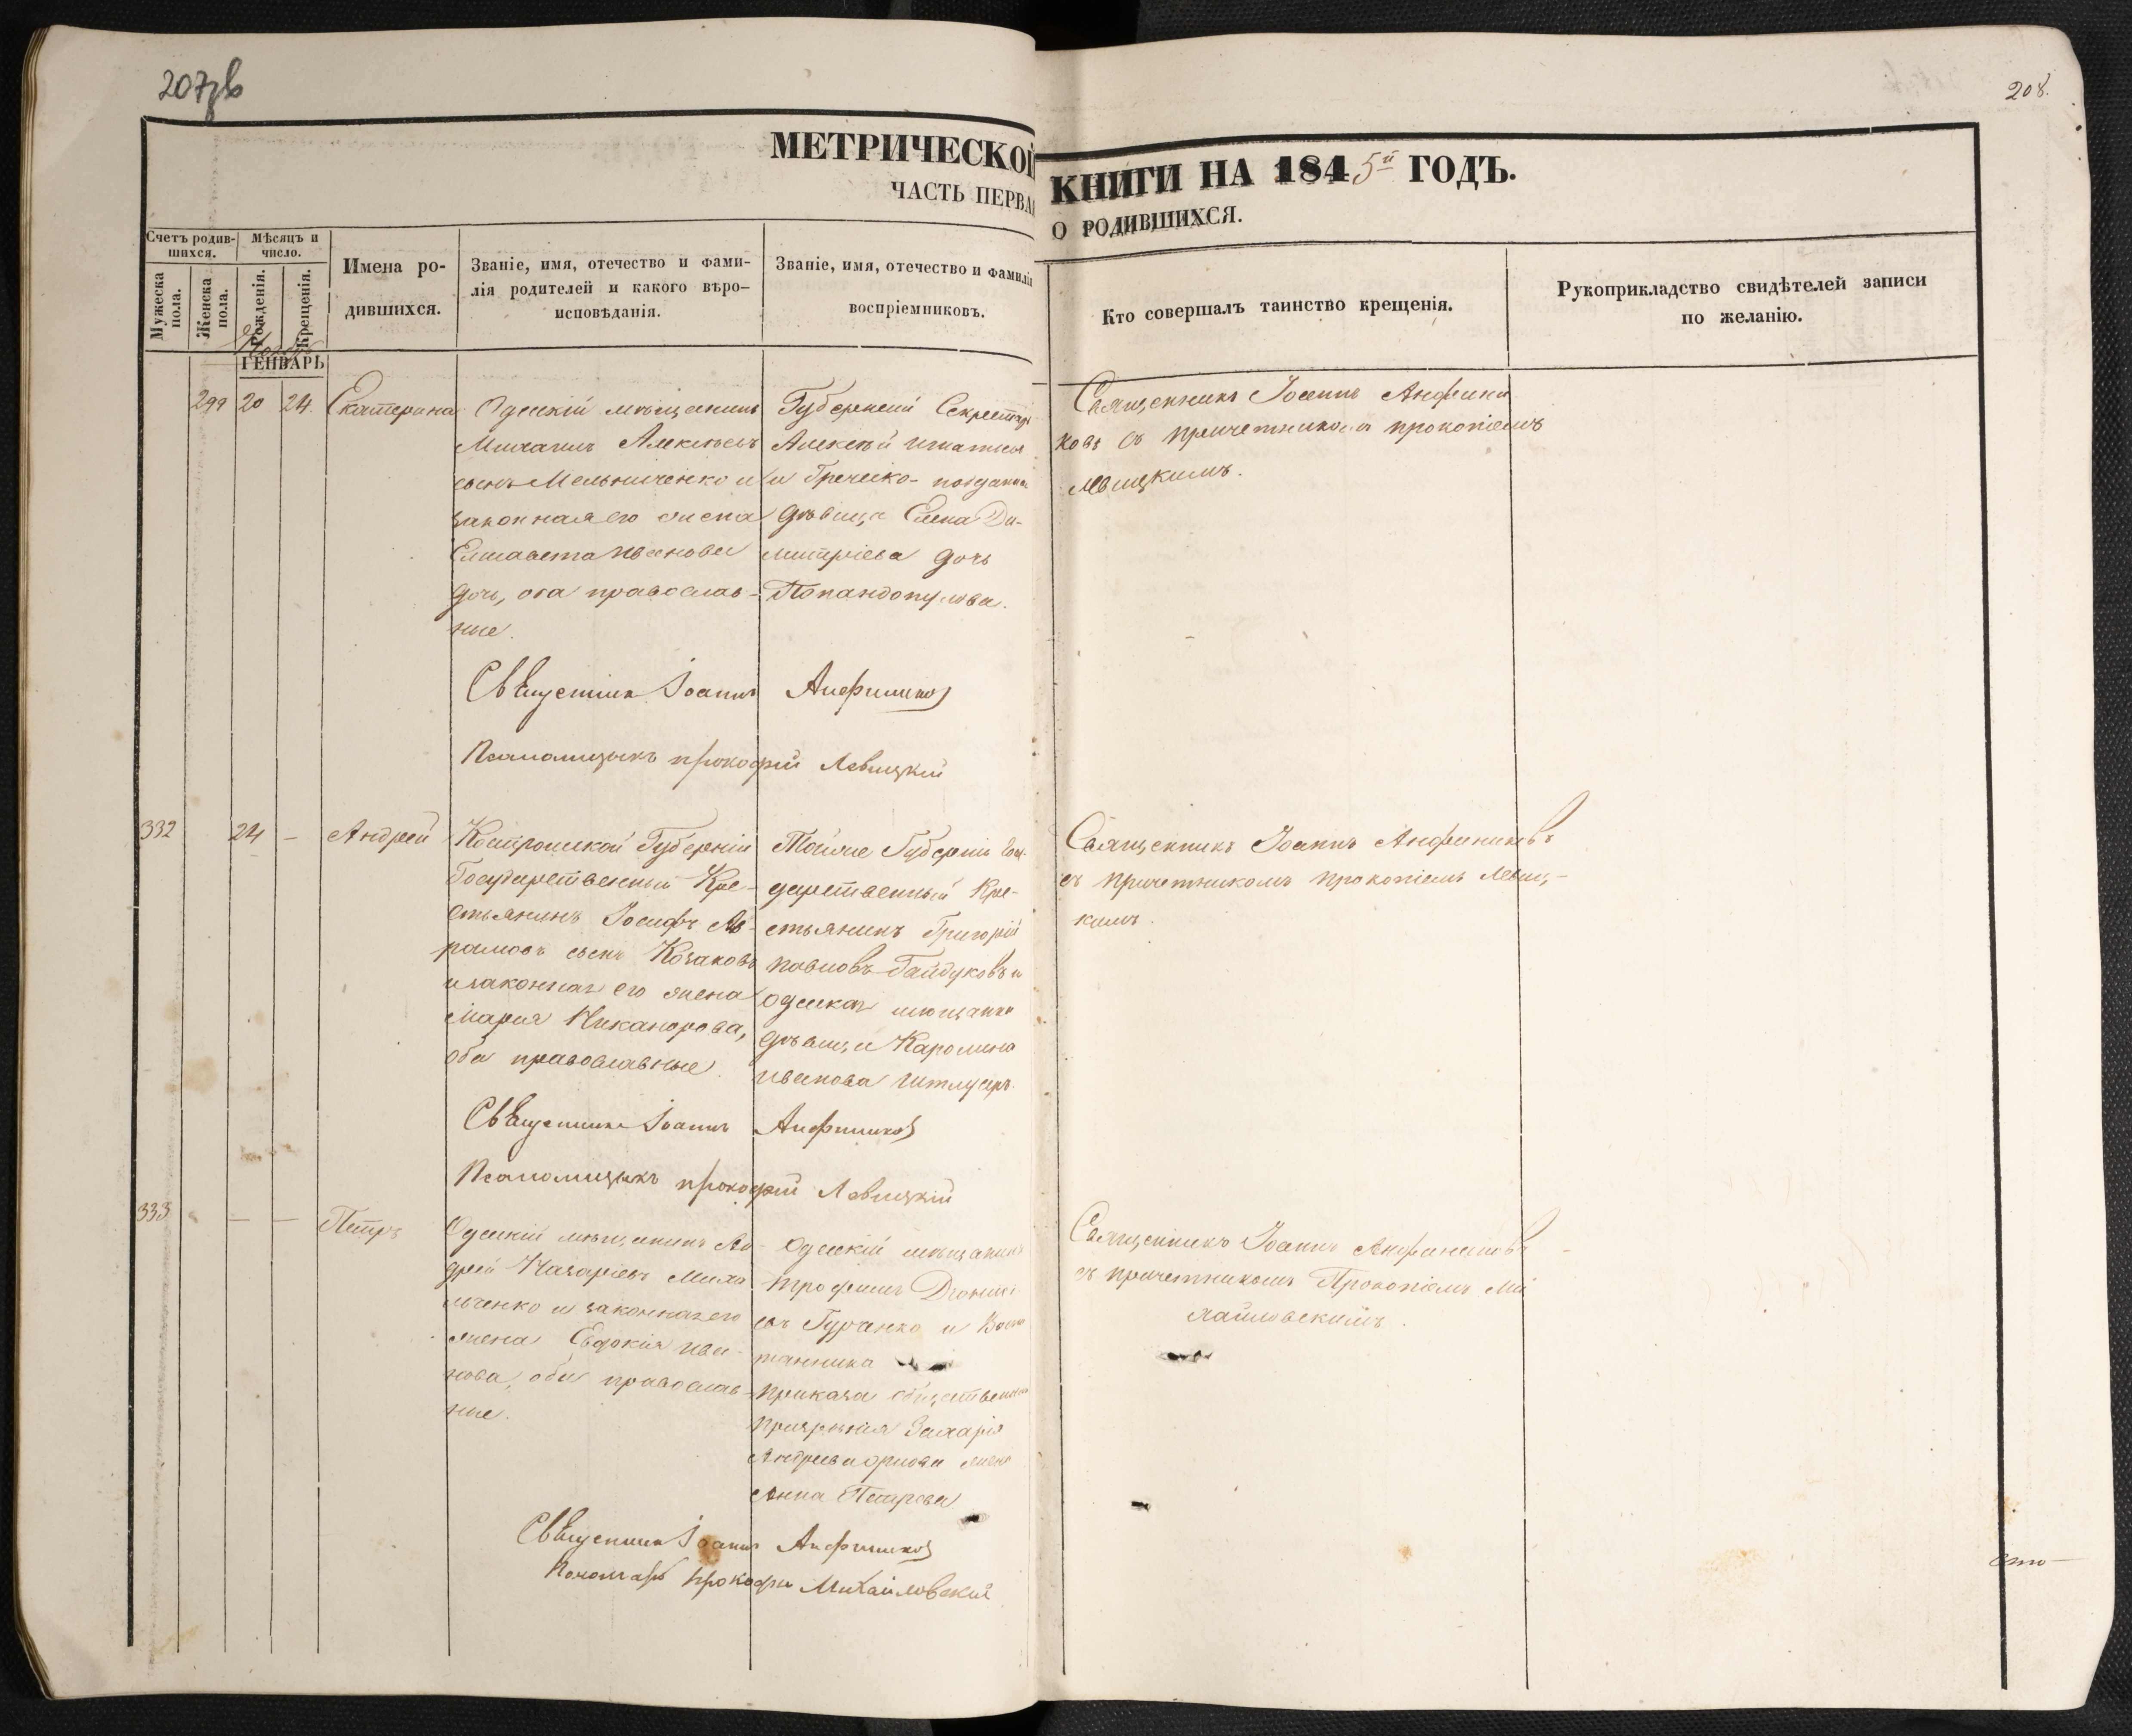 207
208.
МЕТРИЧЕСКОЙ КНИГИ НА 1845й ГОДЪ.
ЧАСТЬ ПЕРВАЯ О РОДИВШИХСЯ.
Счетъ родив-
шихся.
Мужеска
пола.
Женска
пола.
Мѣсяцъ и
число.
Рожденія.
Крещенія.
Имена ро-
дившихся.
Званіе, имя, отечество и фами-
лія родителей и какого вѣро-
исповѣданія.
Званіе, имя, отечество и фамилія
воспріемниковъ.
Кто совершалъ таинство крещенія.
Рукоприкладство свидѣтелей записи
по желанію.
ГЕНВАРЬ
299 20 24. Екатерина
Одесскій мѣщанинъ
Михаилъ Алексѣевъ
сынъ Мельниченко и
законная его жена
Елисавета Иванова
дочь, оба православ-
ные.
Губернскій Секретарь
Алексѣй Игнатьевъ
и Греческо-подданна
дѣвица Елена Ди-
митріева дочь
Попандопулова.
Священникъ Іоаннъ Анфини
ковъ съ причетникомъ Прокопіемъ
Левицкимъ.
Священникъ Іоаннъ Анфиников
Псаломщикъ Прокофій Левицкій
332 24 — Андрей
Костромской Губерніи
Государственный Кре-
стьянинъ Іосифъ Ав-
рамовъ сынъ Козаковъ
и законная его жена
Марія Никанорова,
оба православные.
Тойже Губерніи Госу-
дарственный Кре-
стьянинъ Григорій
Павловъ Гайдуковъ и
одесская мѣщанка
дѣвица Каролина
Иванова
Священникъ Іоаннъ Анфиниковъ
съ причетникомъ Прокопіемъ Левиц-
кимъ.
Священникъ Іоаннъ Анфиников
Псаломщикъ Прокофій Левицкій
333 — — Петръ
Одесскій мѣщанинъ Ан-
дрей Назаріевъ Миха
льченко и законная его
жена Евдокія Ива-
нова, оба православ-
ные.
Одесскій мѣщанинъ
Трофимъ Діонисі
евъ Гуранко и Восп
танника
приказа общественна
призрѣнія Захарія
Андреева Орлова жена
Анна Петрова.
Священникъ Іоаннъ Анфиниковъ
съ причетникомъ Прокопіемъ Ми
хайловскимъ.
Священникъ Іоаннъ Анфиников
Пономарь Прокофи Михайловский
сто—